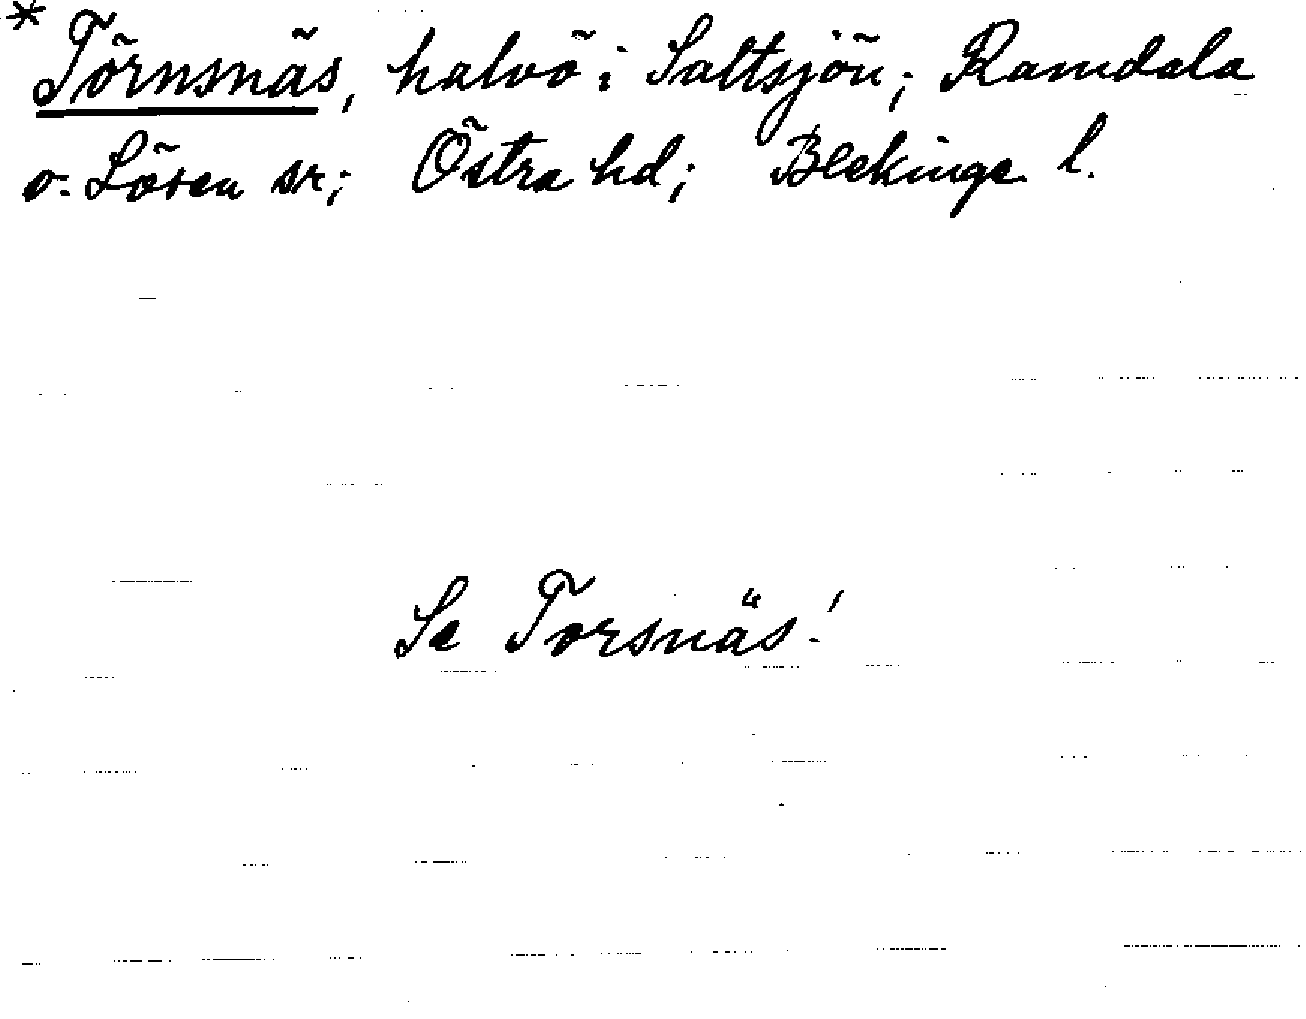 * Törnsnäs, halvö i Saltsjön; Ramdala
o. Lösen sr; Östra hd; Blekinge l.
Se Torsnäs!